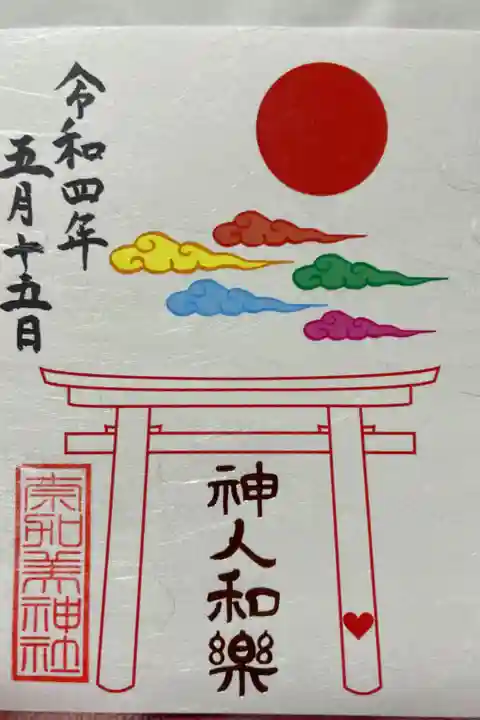 令和四年
五月十五日
神人和樂
崇知美神社